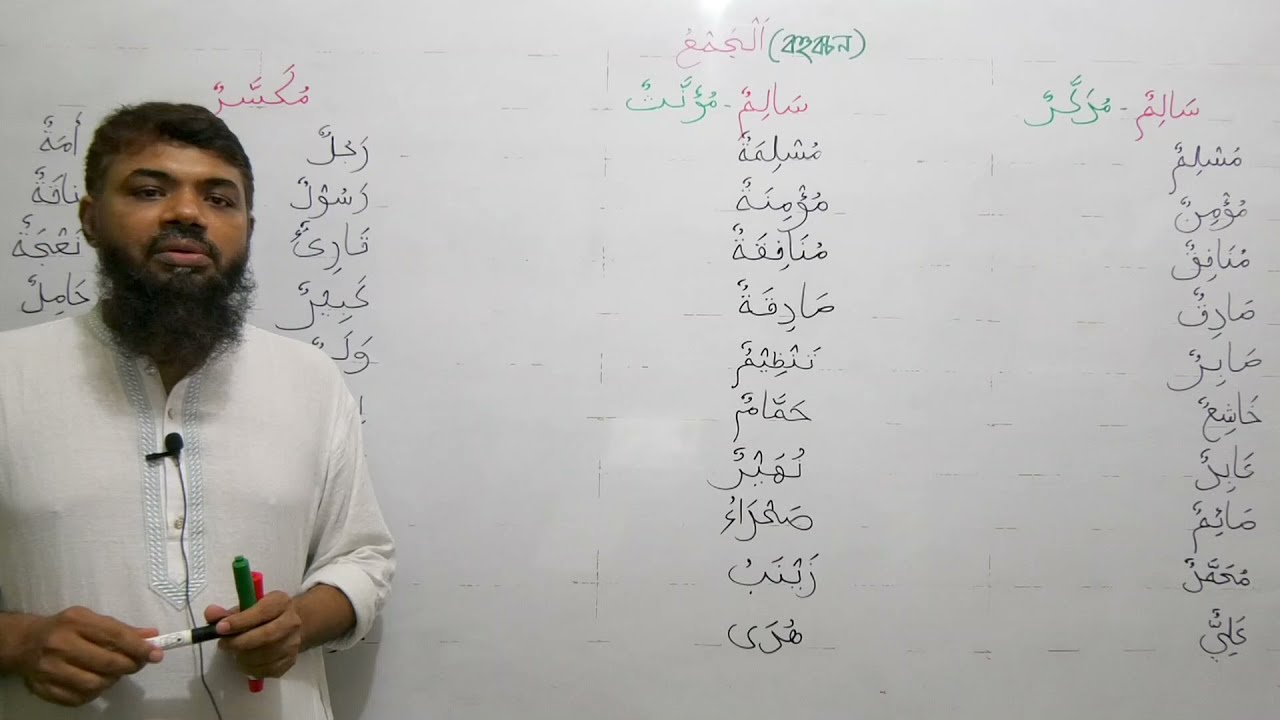 اَلْجَمْعُ (বহুবচন)
سَالِمٌ - مُذَكَّرٌ
مُسْلِمٌ
مُؤْمِنٌ
مُنَافِقٌ
صَادِقٌ
صَابِرٌ
خَاشِعٌ
عَابِدٌ
صَائِمٌ
مُحَمَّدٌ
عَلِيٌّ
سَالِمٌ - مُؤَنَّثٌ
مُسْلِمَةٌ
مُؤْمِنَةٌ
مُنَافِقَةٌ
صَادِقَةٌ
تَنْظِيْمٌ
حَمَّامٌ
نُهَيْرٌ
صَحْرَاءُ
زَيْنَبُ
هُدَى
مُكَسَّرٌ
رَجُلٌ
رَسُوْلٌ
قَارِئٌ
كَبِيْرٌ
أَمَةٌ
نَاقَةٌ
نَعْجَةٌ
حَامِلٌ